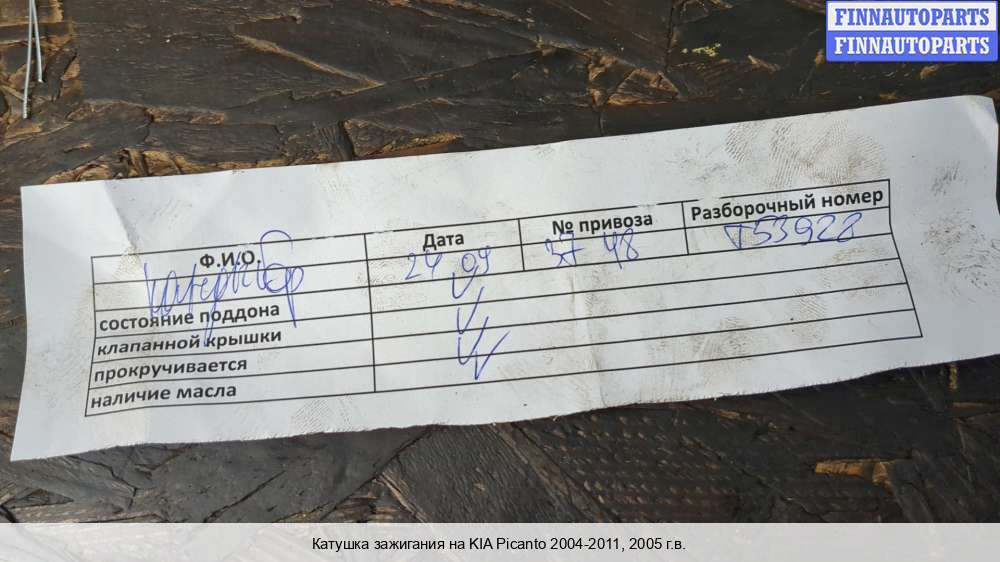 FINNAUTOPARTS
FINNAUTOPARTS
Ф.И.О. Дата № привоза Разборочный номер
24.09 37 48 T53922
состояние поддона
клапанной крышки
прокручивается
наличие масла
Катушка зажигания на KIA Picanto 2004-2011, 2005 г.в.